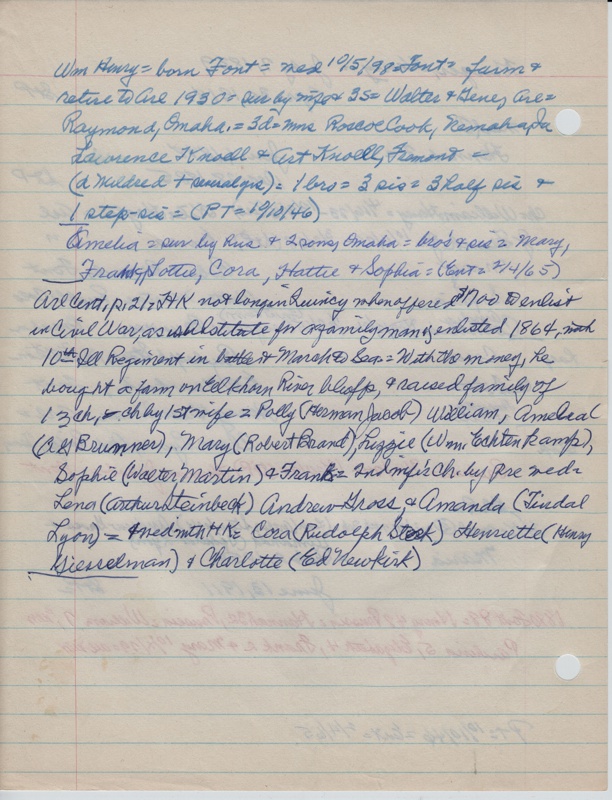 Wm Henry = born Font = med 10/5/98 = Font = farm &
retire to Arl 1930 = sur by mfg & 3S = Walter & Gene, Arl =
Raymond, Omaha. = 3d = Mrs Roscoe Cook, Nemaha, Ia
Lawrence Knoell & Art Knoell, Fremont =
(d Mildred + neuralgia) = 1 bro = 3 sis = 3 half sis &
1 step-sis = (PT = 10/10/46)
Amelia = sur by hus & 2 sons, Omaha = bro's & sis = Mary,
Frank, Lottie, Cora, Hattie & Sophia = (Ent = 2/4/65)
Arl Cent, p. 21 = HK not long in Quincy when offered $700 to enlist
in Civil War, as substitute for a family man, enlisted 1864, with
10th Ill Regiment in battle & March to Sea = With the money, he
bought a farm on Elkhorn River bluffs, & raised family of
1 3 ch, = ch by 1st wife = Polly (Herman Jacob) William, Amelia
Brunner), Mary (Robert Brand), Lizzie (Wm. Echtenkamp),
Sophie (Walter Martin) & Frank = 2nd mfs ch. by pre med =
Lena (Arthur Steinbeck) Andrew Gross, & Amanda (Tindal
Lyon) = & med mth HK = Cora (Rudolph Stork) Henriette (Henry
Giesselman) & Charlotte (Ed Newkirk)